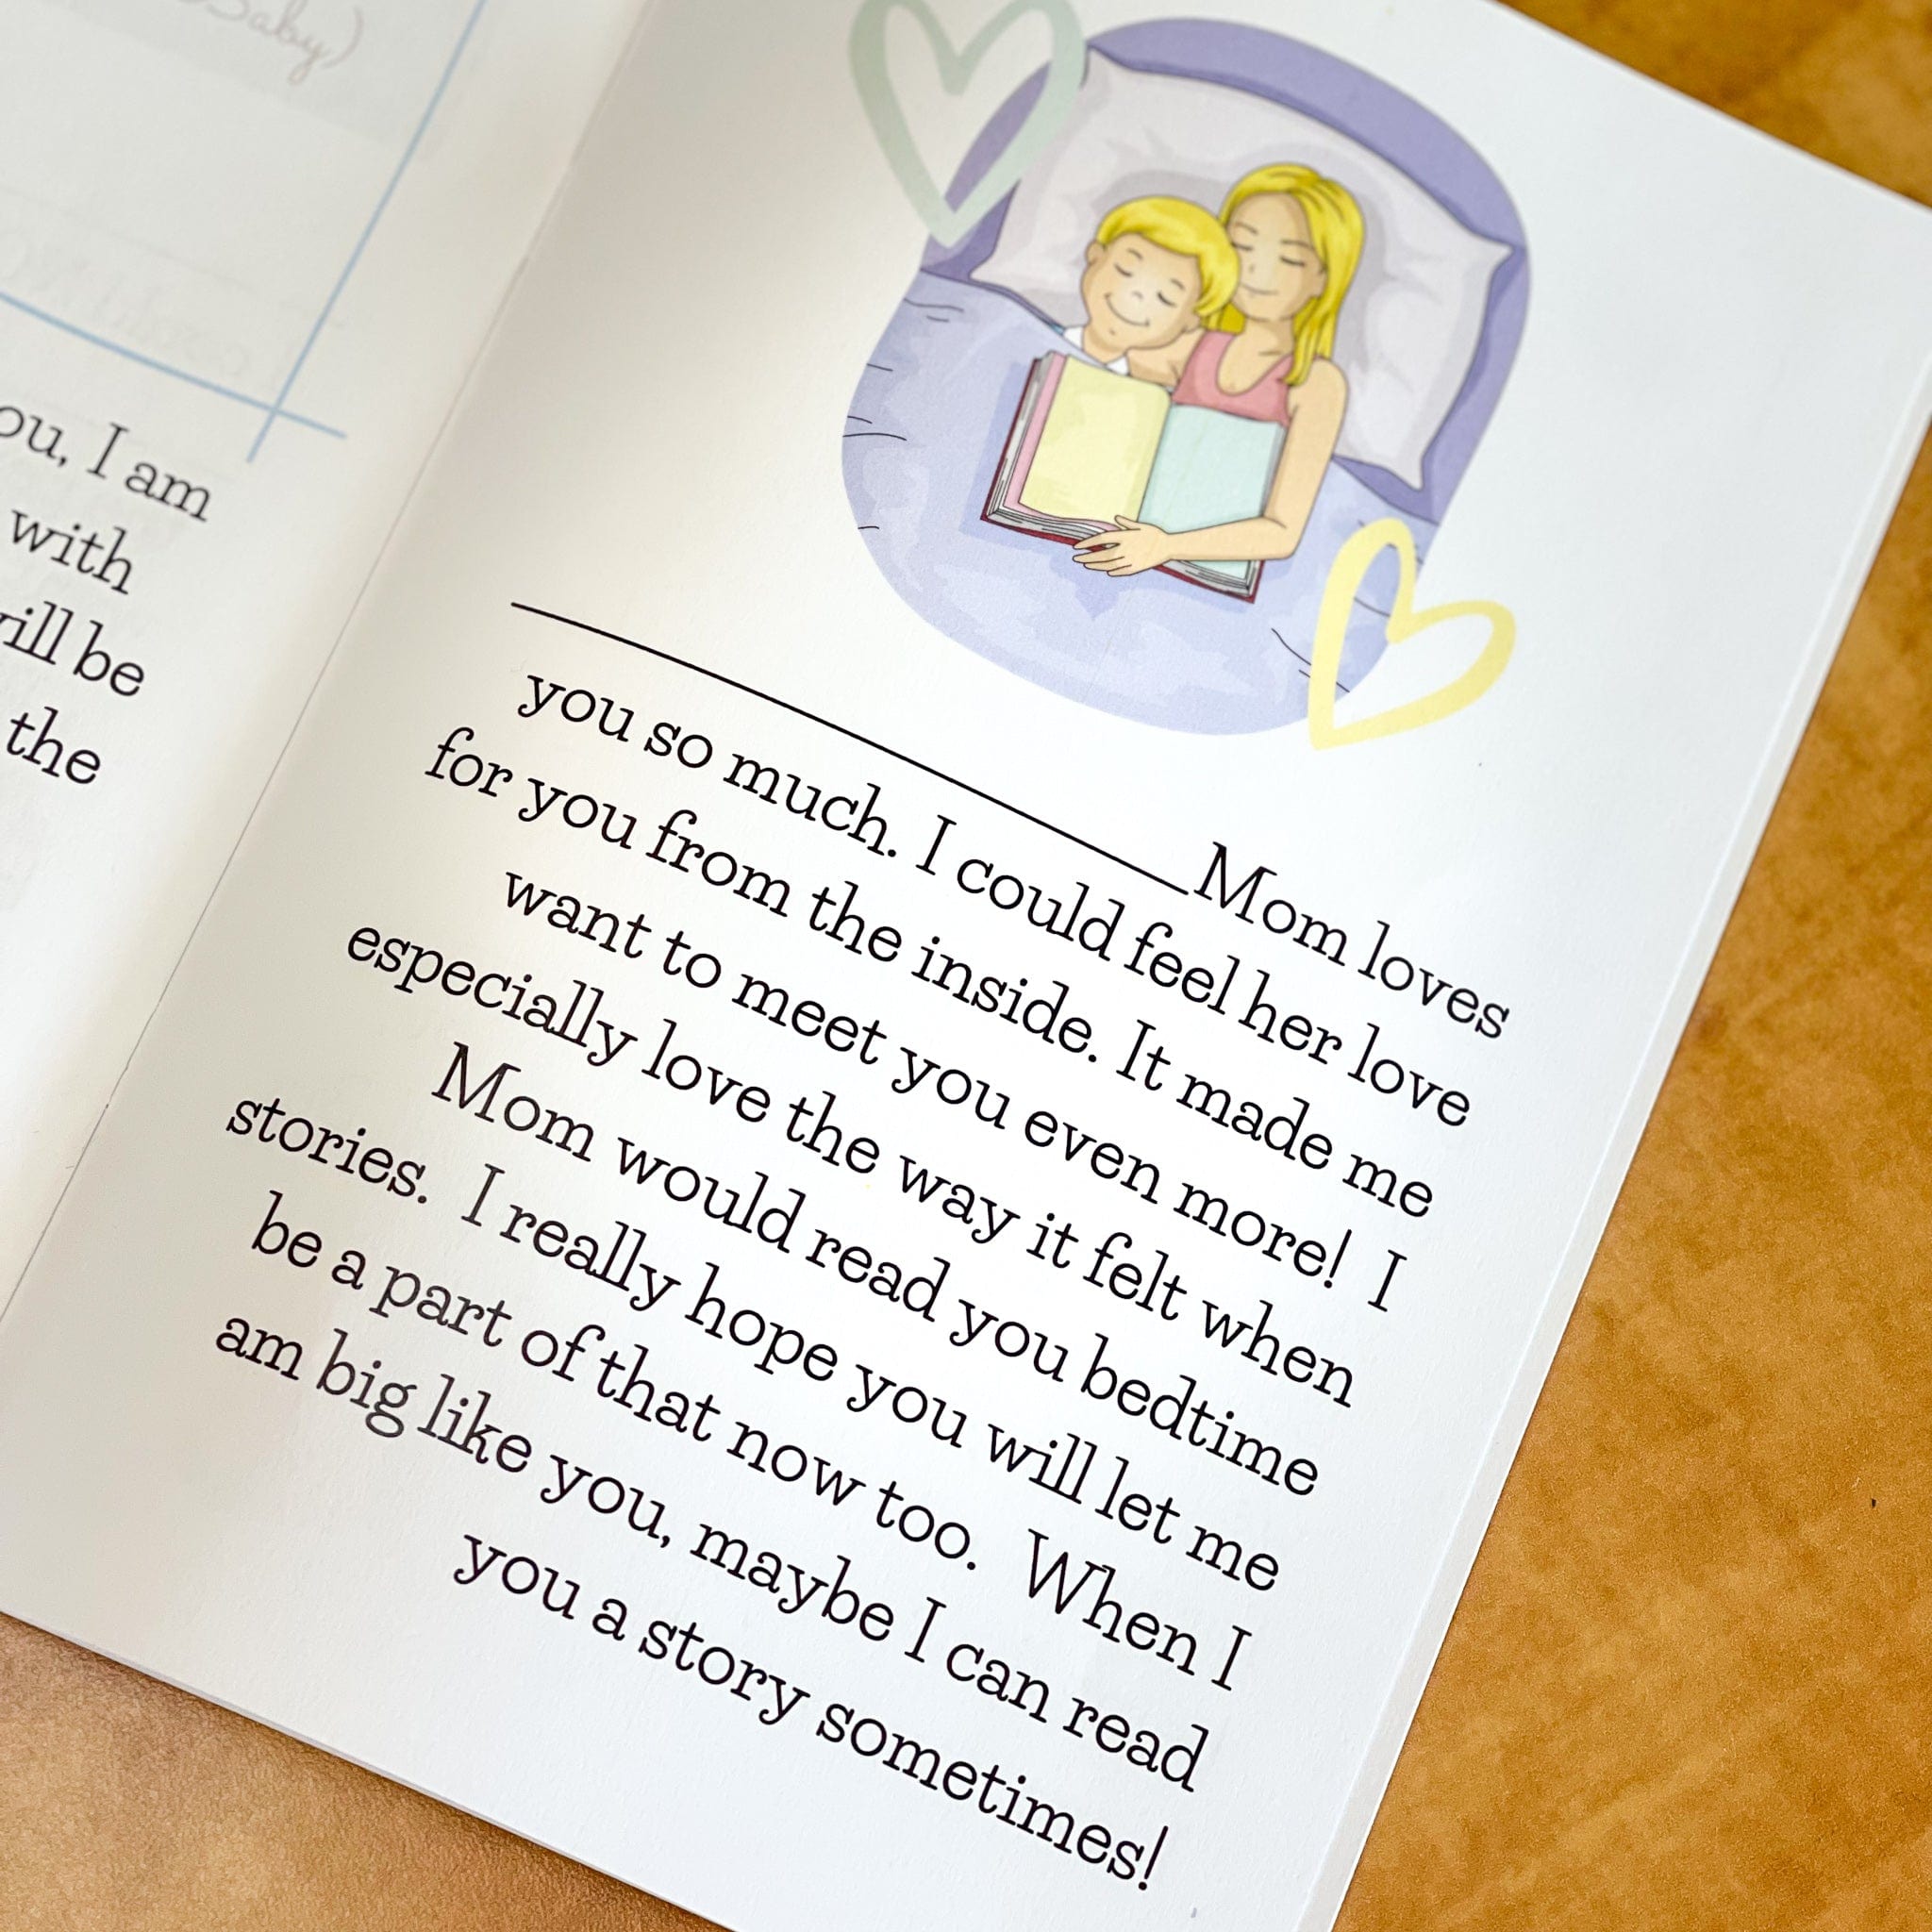 Baby)
ou, I am
with
ill be
the
Mom loves
you so much. I could feel her love
for you from the inside. It made me
want to meet you even more! I
especially love the way it felt when
Mom would read you bedtime
stories. I really hope you will let me
be a part of that now too. When I
am big like you, maybe I can read
you a story sometimes!